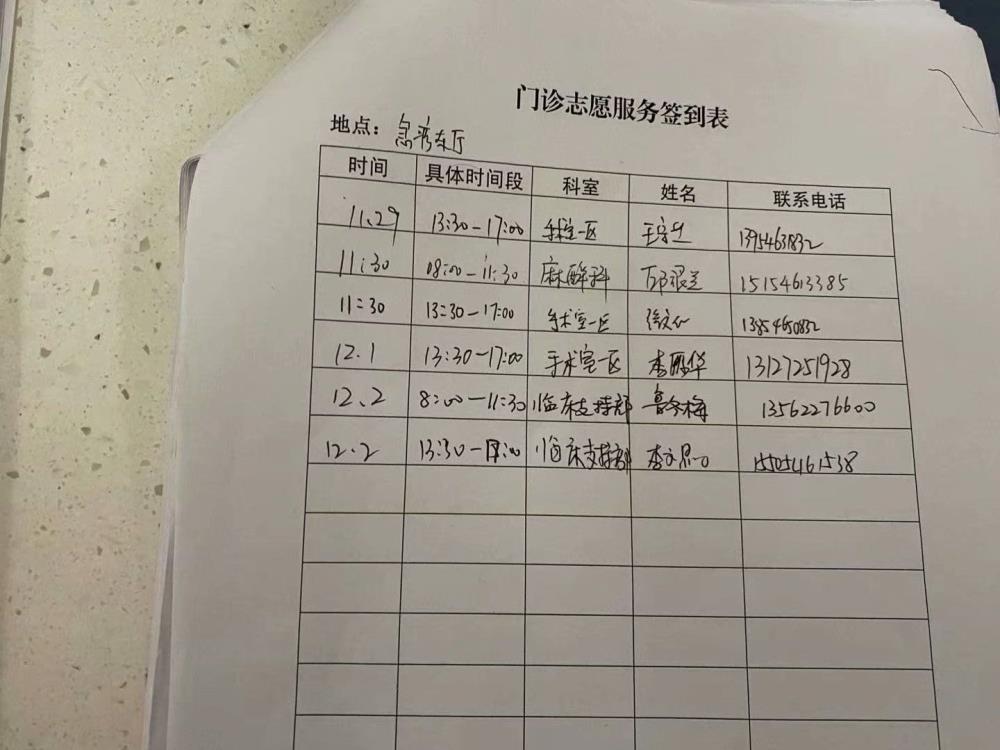 门诊志愿服务签到表
地点：急诊东厅
时间 具体时间段 科室 姓名 联系电话
11.29 13:30-17:00 手术室一区
11:30 08:00-11:30 麻醉科 15154613385
11:30 13:30-17:00 手术室一区
12.1 13:30-17:00 手术室一区 李鹏华 13127251928
12.2 8:00-11:30 临床支持部 鲁冬梅 13562276600
12.2 13:30-17:00 临床支持部 15054461538